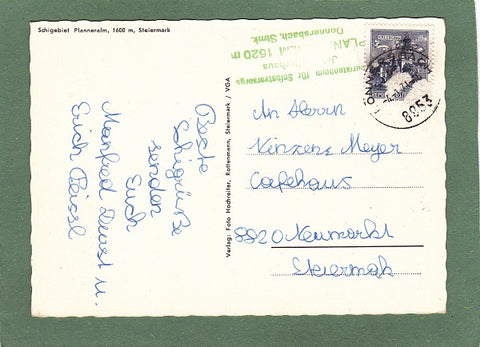 Schigebiet Planneralm, 1600 m, Steiermark
Beste
Schigrüße
senden
Euch
Manfred
Erich
Verlag: Foto Hochreiter, Rottenmann, Steiermark / VGA
Touristenheim für Selbstversorger
1620 m
Donnersbach, Stmk.
8953
An Herrn
Vinzens Meyer
Cafehaus
8820 Neumarkt
Steiermak